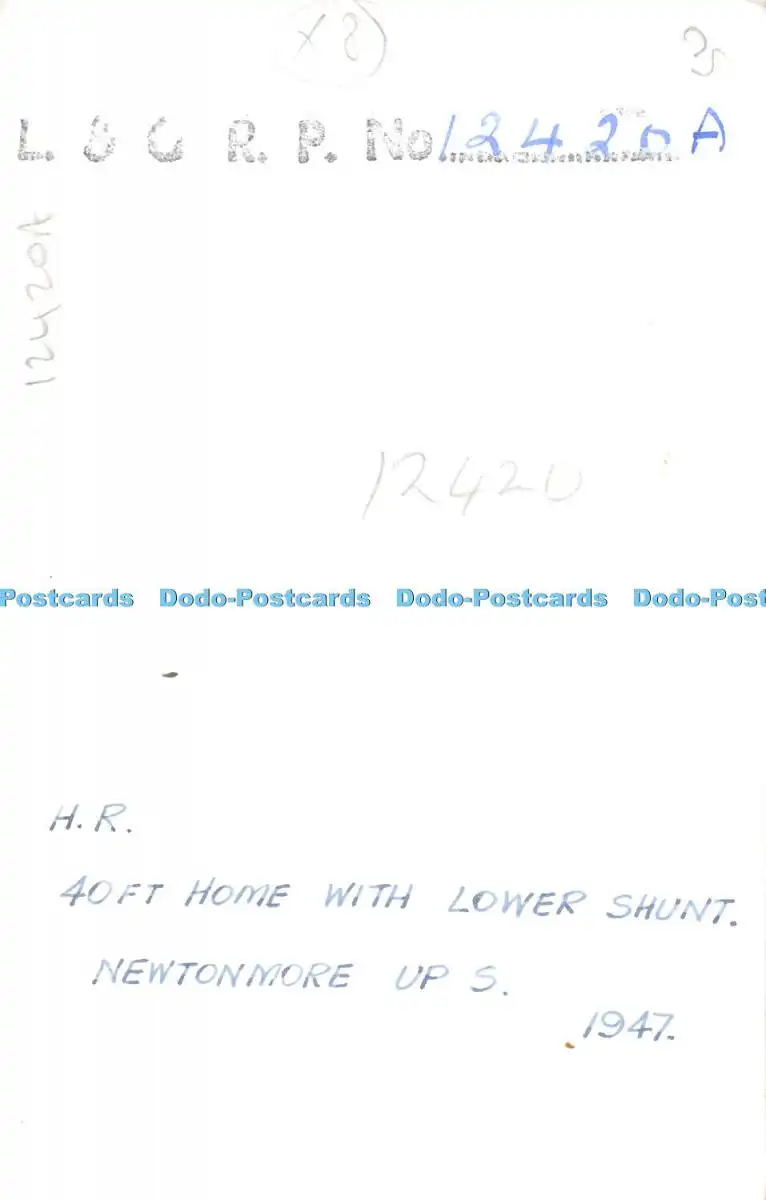 x 8
L. & G R. P. No 12420A
12420A
12420
Postcards Dodo-Postcards Dodo-Postcards Dodo-Post
H.R.
40FT HOME WITH LOWER SHUNT.
NEWTONMORE UP S.
1947.